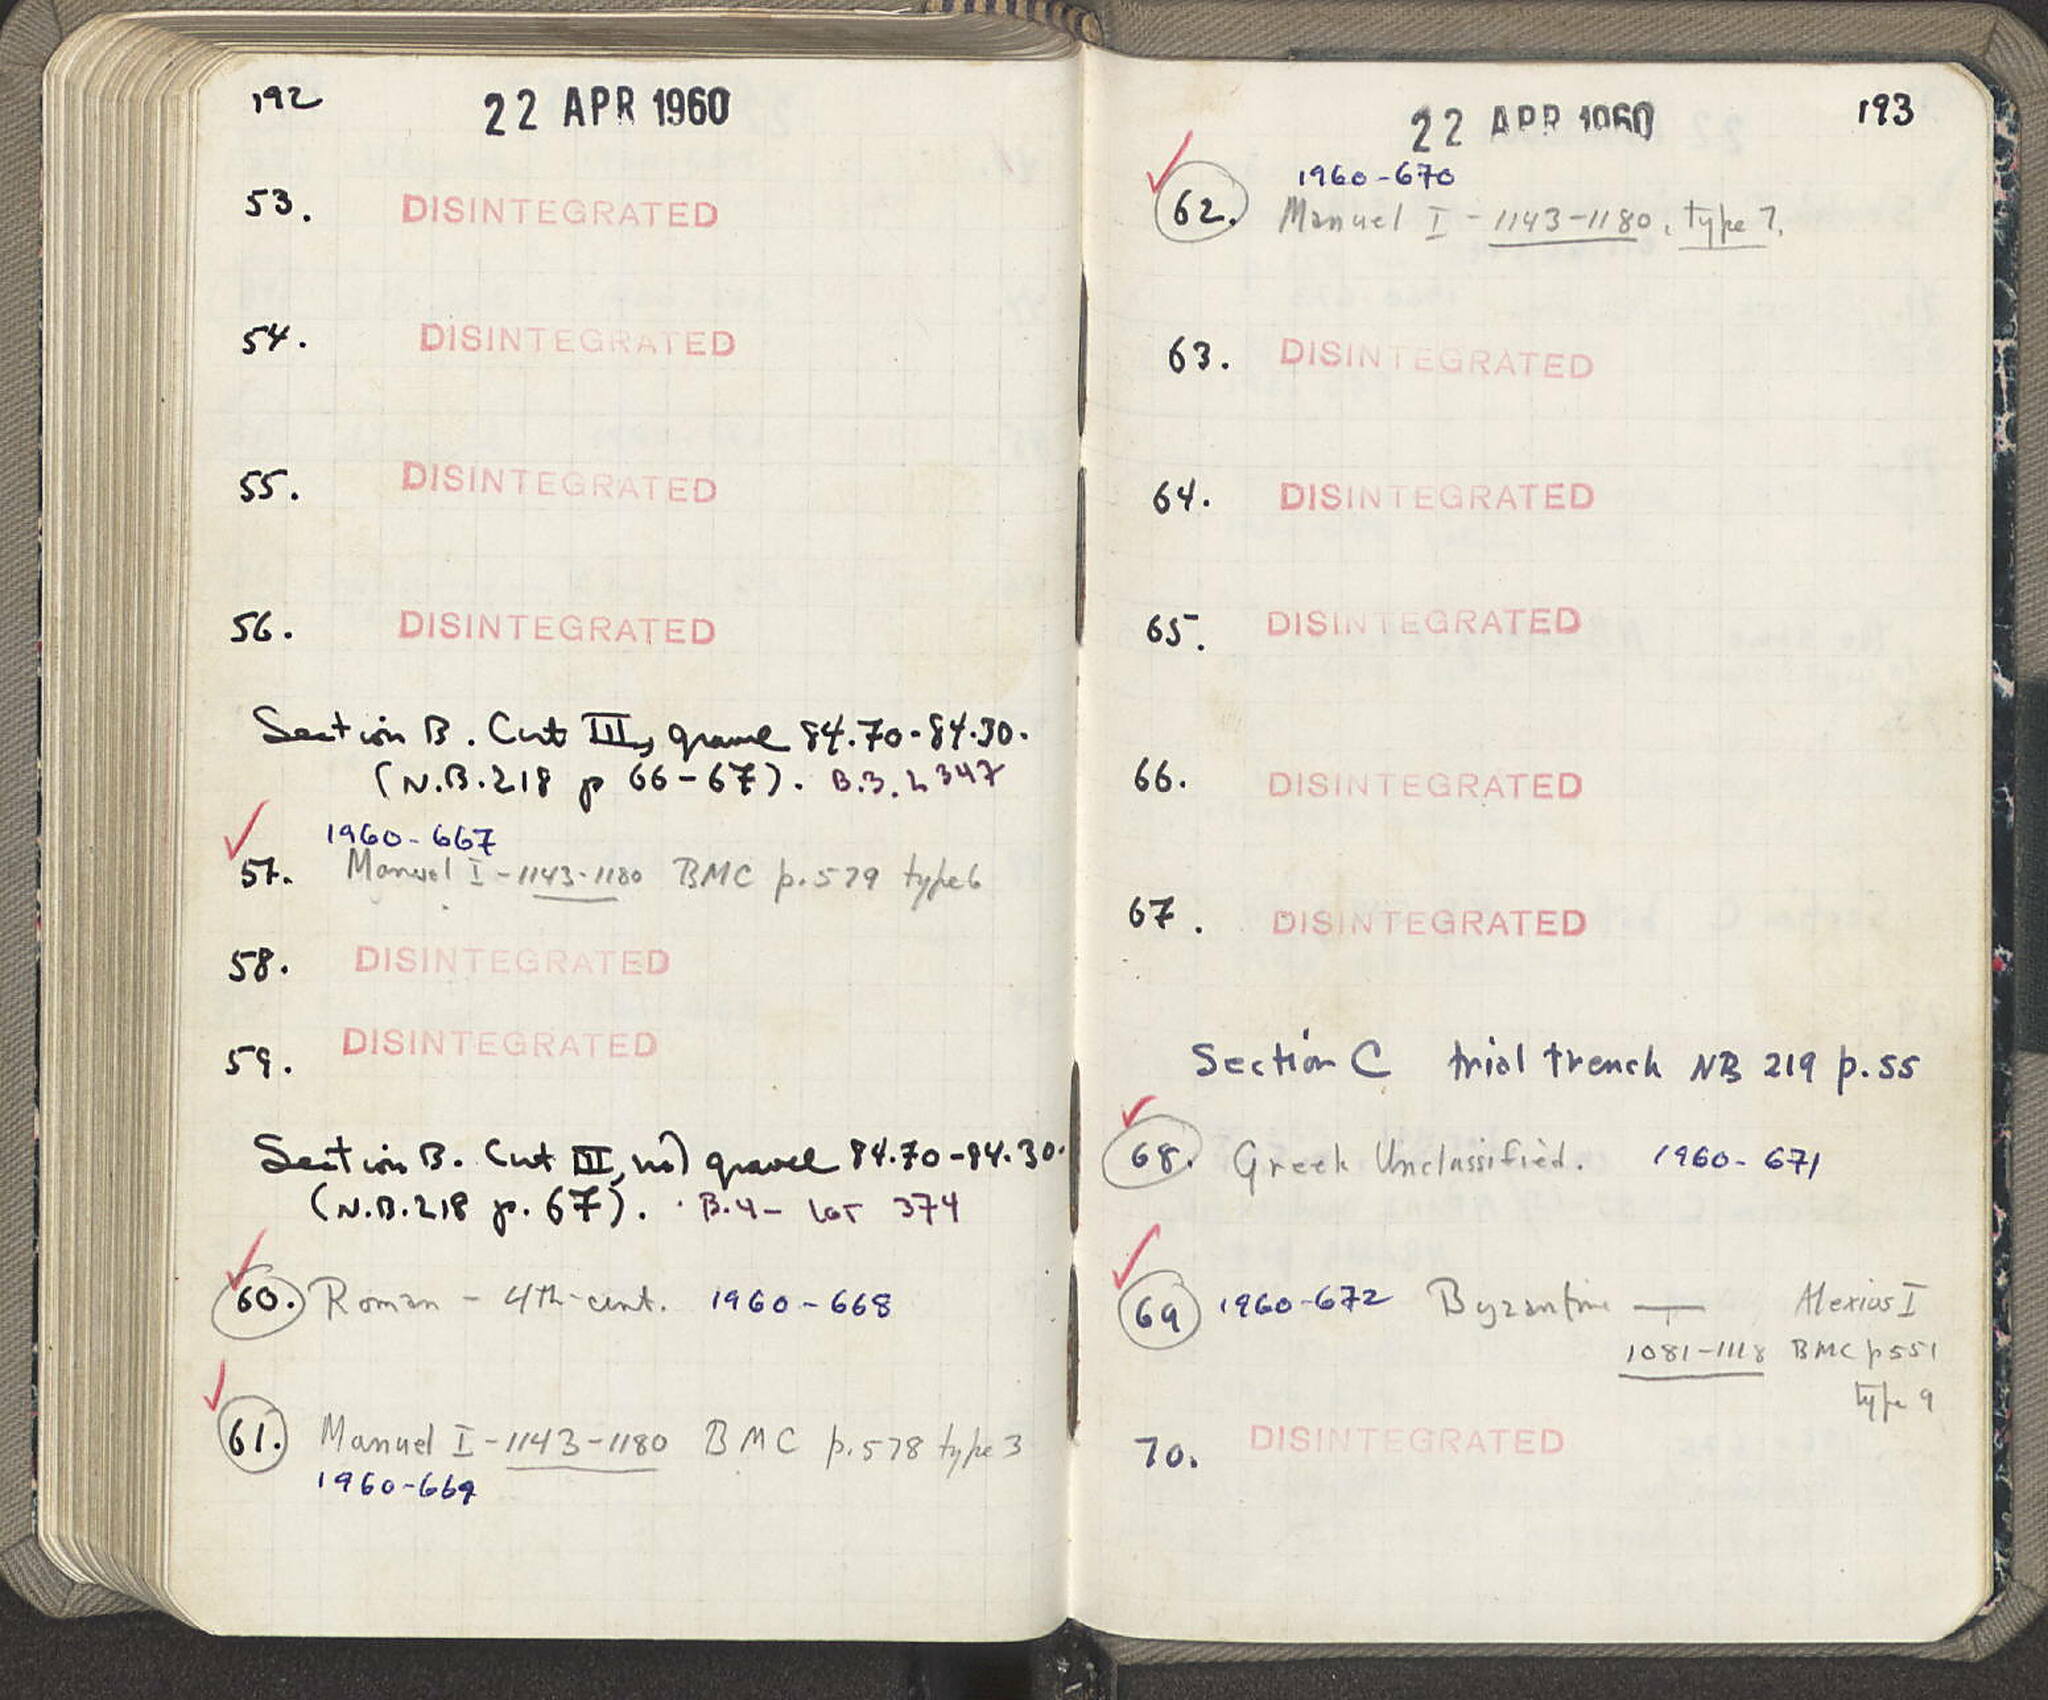 192
22 APR 1960
53. DISINTEGRATED
54. DISINTEGRATED
55. DISINTEGRATED
56. DISINTEGRATED
Section B. Cut III, gravel 84.70-84.30.
(N.B.218 p 66-67). B.3. L 347
1960-667
57. Manuel I - 1143-1180 BMC p.579 type 6
58. DISINTEGRATED
59. DISINTEGRATED
Section B. Cut III, gravel 84.70-84.30.
(N.B.218 p. 67). B.4- Lot 374
60. Roman - 4th cent. 1960-668
61. Manuel I - 1143-1180 BMC p.578 type 3
1960-669
193
22 APR 1960
1960-670
62. Manuel I - 1143-1180, type 7.
63. DISINTEGRATED
64. DISINTEGRATED
65. DISINTEGRATED
66. DISINTEGRATED
67. DISINTEGRATED
Section C trial trench NB 219 p.55
68. Greek Unclassified. 1960-671
69 1960-672 Byzantine — Alexius I
1081-1118 BMC p551
type 9
70. DISINTEGRATED